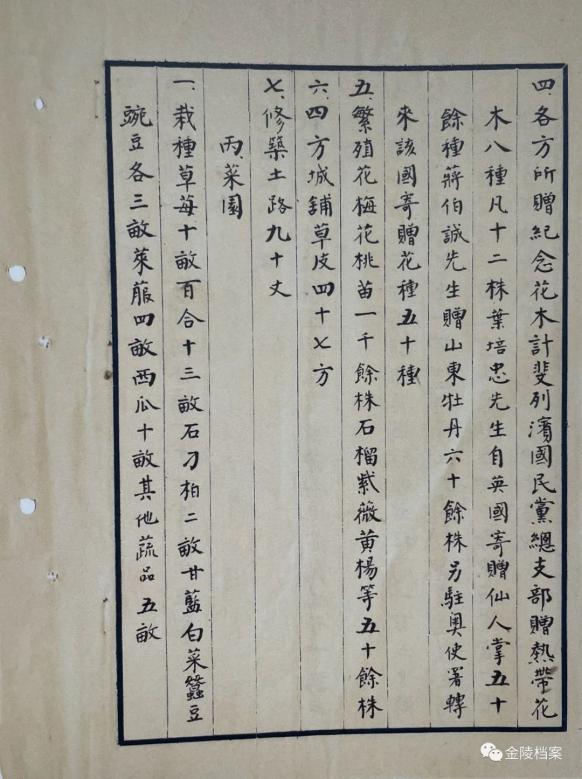 四、各方所贈紀念花木計斐列濱國民黨總支部贈熱帶花
木八種凡十二株葉培忠先生自英國寄贈仙人掌五十
餘種蔣伯誠先生贈山東牡丹六十餘株另駐奧使署轉
來該國寄贈花種五十種
五、繁殖花梅花桃苗一千餘株石榴紫薇黄楊等五十餘株
六、四方城舖草皮四十七方
七、修築土路九十丈
丙、菜園
一、栽種草莓十畝百合十三畝石刁柏二畝甘藍白菜蠶豆
豌豆各三畝萊菔四畝西瓜十畝其他蔬品五畝
金陵档案